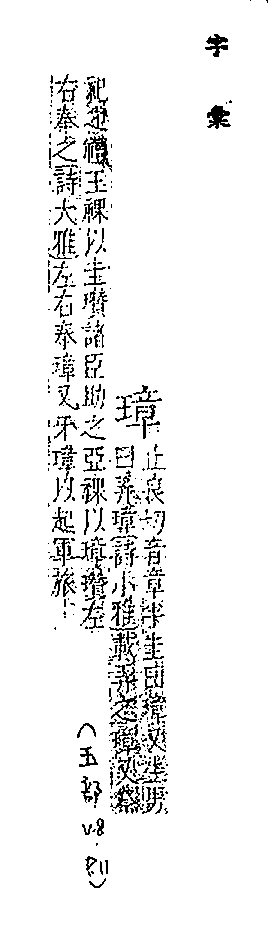 字彙
璋
止良切音章半圭曰璋又生男
曰弄璋詩小雅載弄之璋又祭
祀之禮王祼以圭瓚諸臣助之亞祼以璋瓚左
右奉之詩大雅左右奉璋又牙璋以起軍旅
(玉部 v.8 P.11)